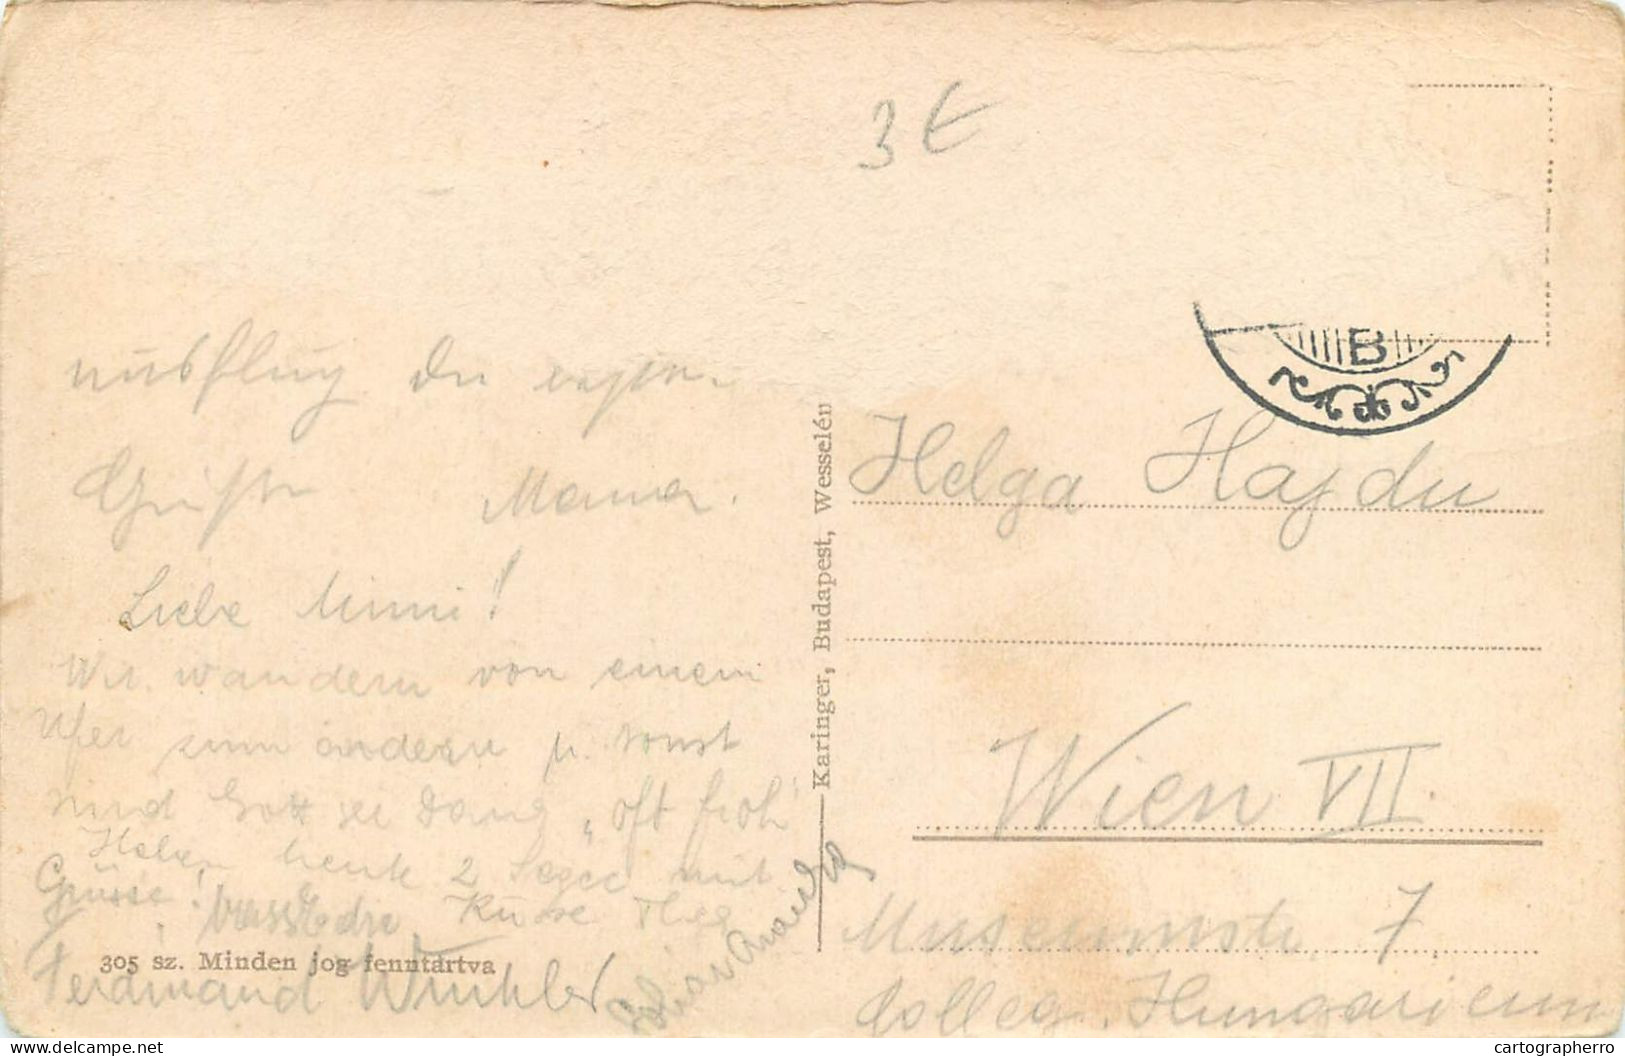 3 €
Ausflug
Grüße Mama.
Liebe Mimi!
Wir wandern von einem
Ufer zum andern u. sonst
sind Gott sei Dank „oft froh"
Haben heute 2 mit
Grüsse! Küsse
305 sz. Minden jog fenntartva
Ferdinand Winkler
Karinger, Budapest, Wesselén
B
Helga Hajdu
Wien VII.
Museumstr. 7
Colleg. Hungaricum
Delcampe.net
cartographerro